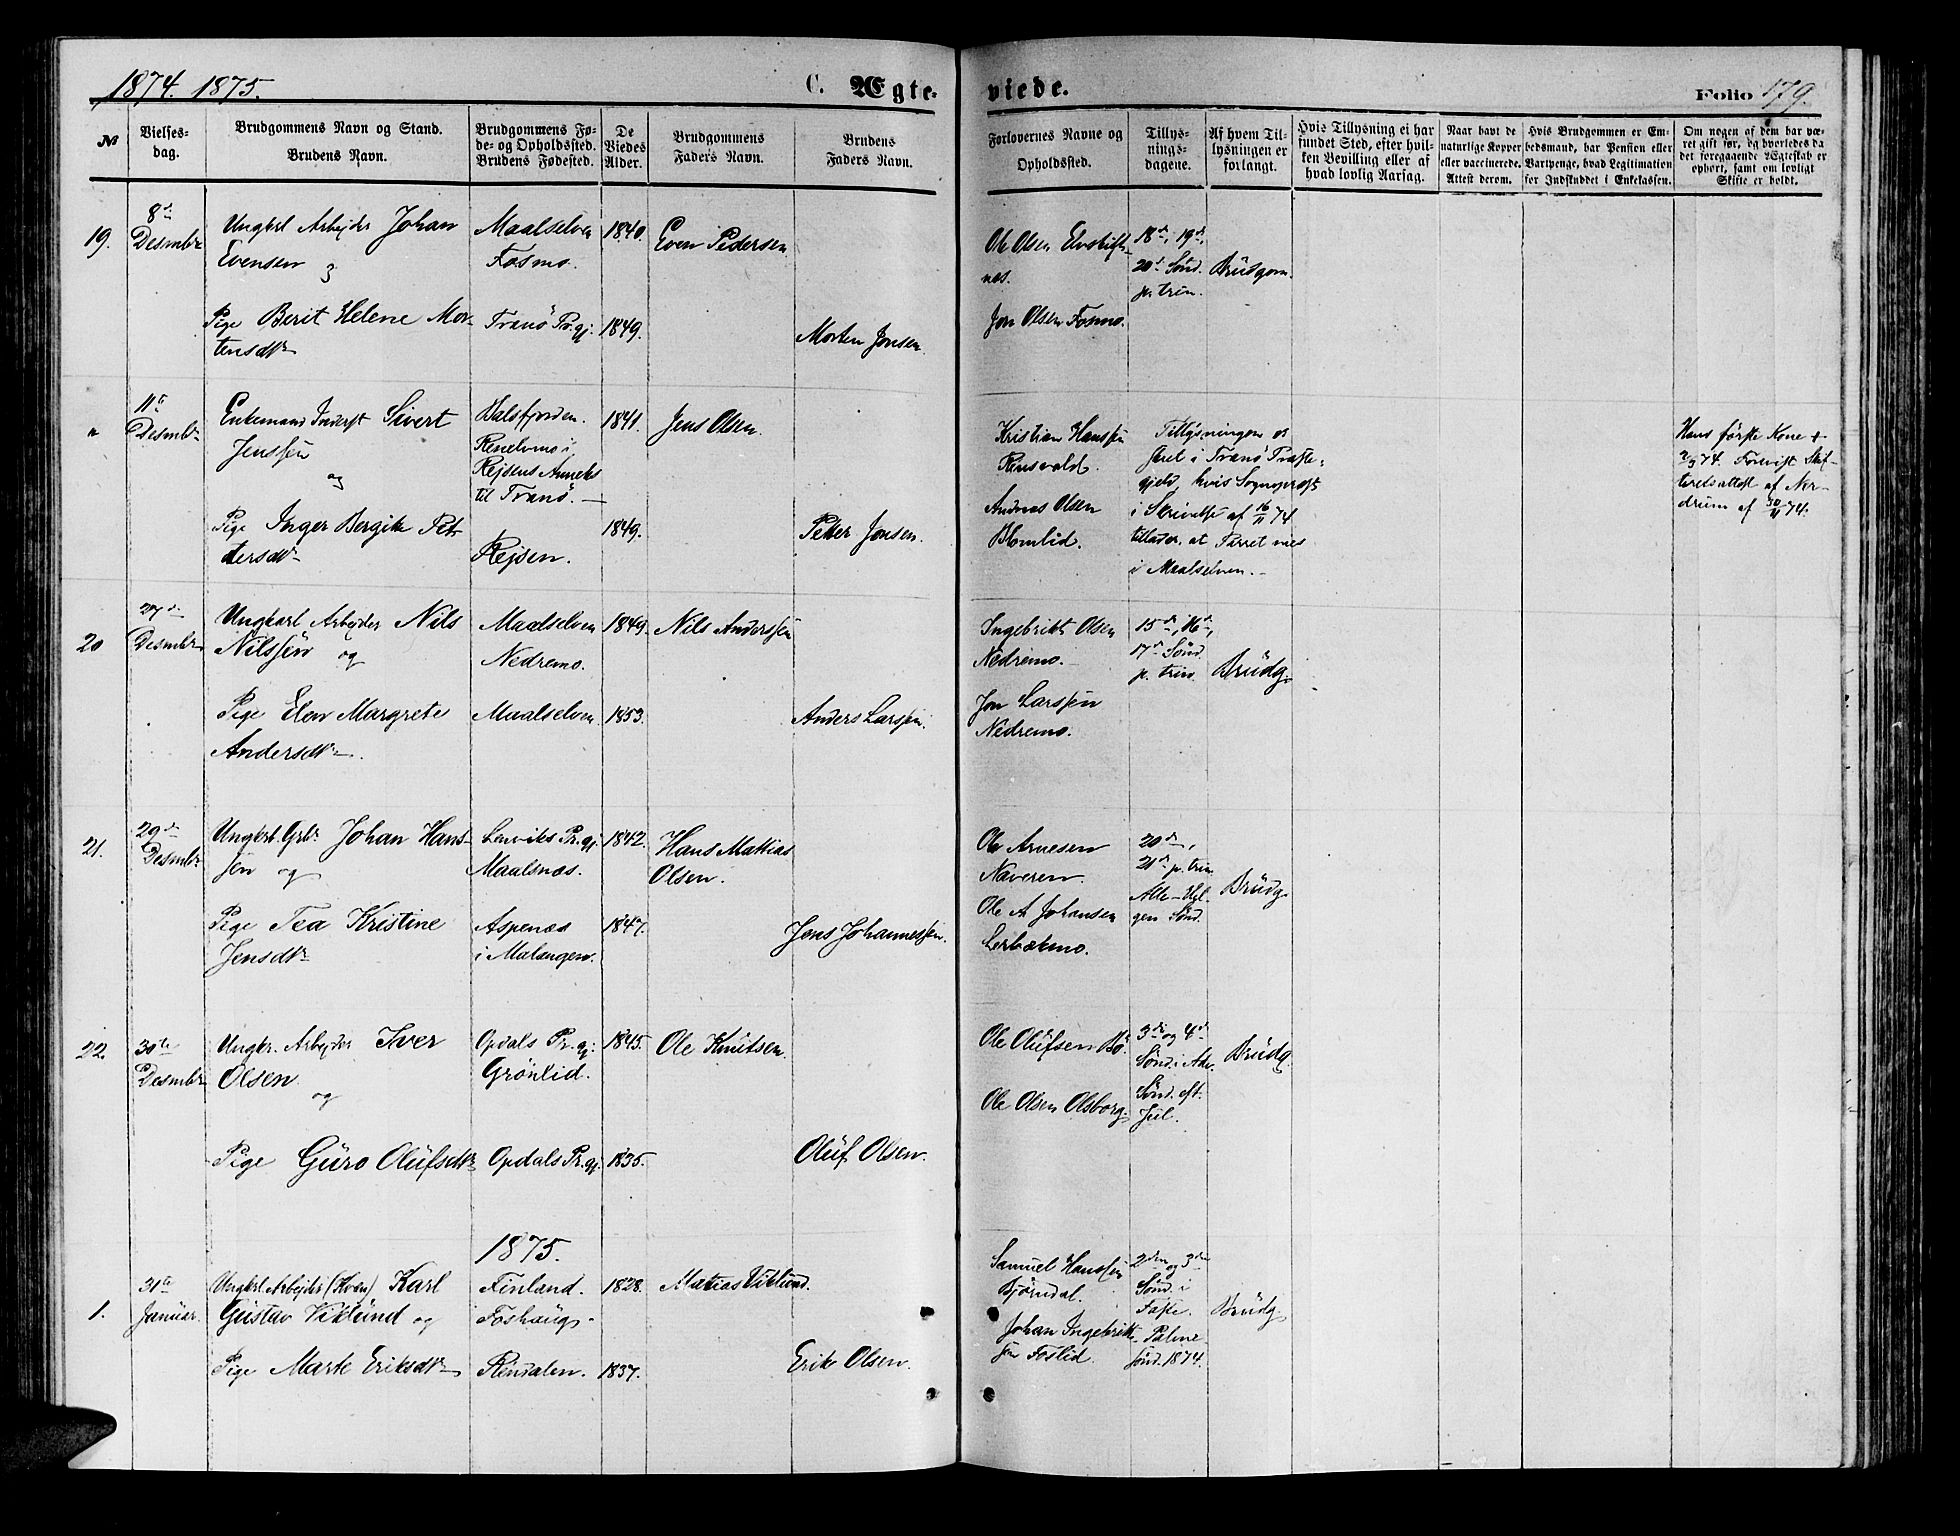 1874. 1875.
C. Ægte-
viede.
Folio 179.
№
Vielses-
dag.
Brudgommens Navn og Stand.
Brudens Navn.
Brudgommens Fø-
de- og Opholdssted.
Brudens Fødested.
De
Viedes
Alder.
Brudgommens
Faders Navn.
Brudens
Faders Navn.
Forlovernes Navne og
Opholdssted.
Tillys-
nings-
dagene.
Af hvem Til-
lysningen er
forlangt.
Hvis Tillysning ei har
fundet Sted, efter hvil-
ken Bevilling eller af
hvad lovlig Aarsag.
Naar havt de
naturlige Kopper
eller vaccinerede.
Attest derom.
Hvis Brudgommen er Em-
bedsmand, har Pension eller
Vartpenge, hvad Legitimation
for Indskuddet i Enkekassen.
Om nogen af dem har væ-
ret gift før, og hvorledes da
det foregaaende Ægteskab er
ophørt, samt om lovligt
Skifte er holdt.
19.
8de
Desmbr
Ungkrl Arbejder Johan
Evensen og
Pige Berit Helene Mor-
tensdtr
Maalselven
Fosmo.
Tranö Pr.gj.
1840.
1849.
Even Pedersen
Morten Jonsen.
Ole Olsen Elvskift-
næs.
Jon Olsen Fosmo.
18de, 19de,
20de Sönd.
p. trin.
Brüdgom.
"
11te
Desmbr
Enkemand Inderst Sivert
Jenssen
og
Pige Inger Bergite Pet-
tersdtr
Balsfjorden.
Rejsens Anneks
til Tranö. —
Rejsen.
1841.
1849.
Jens Olsen.
Petter Jonsen.
Kristian Hanssen
Rensvold.
Andreas Olsen
Blomlid.
Tillysningen er
skeet i Tranö Præste-
gjeld, hvis Sogneprest
i Skrivelse af 16/11 74
tillader, at Parret vies
i Maalselven. —
Hans förste Kone +
2/3 74. Forevist Skif-
teretsattest af Ner-
drum af 30/11 74.
20
27de
Desmbr
Ungkarl Arbejder Nils
Nilssen og
Pige Elen Margrete
Andersdtr
Maalselven
Nedremo.
Maalselven
1849.
1853.
Nils Anderssen
Anders Larssen.
Ingebrikt Olsen
Nedremo.
Jon Larssen
Nedremo.
15de, 16de,
17de Sönd.
p. trin.
Brüdg.
21.
29de
Desmbr
Ungkrl. Grbr. Johan Hans-
sen og
Pige Tea Kristine
Jensdtr
Lenviks Pr.gj.
Maalsnæs.
Aspenæs
i Malangen.
1842.
1847.
Hans Mattias
Olsen.
Jens Johannessen.
Ole Arnesen
Naveren.
Ole A Johansen
Lerbækmo.
20de,
21de p. trin.
Alle-Hel-
gen Sönd.
Brüdg.
22.
30te
Desmbr
Ungkr. Arbejder Iver
Olsen
og
Pige Güro Olüfsdtr
Opdals Pr.gj.
Grönlid.
Opdals Pr.gj.
1845.
1835.
Ole Knütsen.
Olüf Olsen.
Ole Olüfsen Bö.
Ole Olsen Olsborg.
3de og 4de
Sönd. i Adv.
Sönd. eft.
Jul.
Brüdg.
1875.
1.
31te
Januar.
Ungkrl. Arbejder (Kven) Karl
Gustav Viklünd og
Pige Marte Eriksdtr
Finland.
Foshaüg.
Rendalen.
1828.
1837.
Matias Viklund.
Erik Olsen.
Samuel Hanssen
Björndal.
Johan Ingebrikt-
sen Foslid.
2den og 3die
Sönd. i
Faste.
Palme
sönd. 1874.
Brüdg.